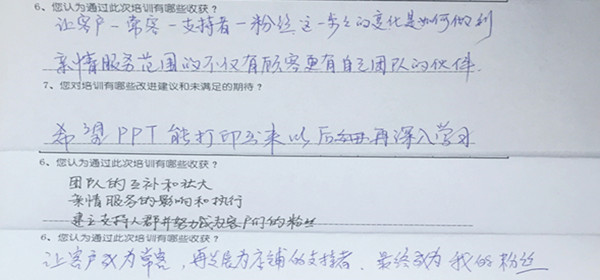 6、您认为通过此次培训有哪些收获？
让客户一常客一支持者一粉丝这一步步的变化是如何做到
亲情服务范围的不仅有顾客更有自己团队的伙伴.
7、您对培训有哪些改进建议和未满足的期待？
希望PPT能打印出来以后再深入学习
6、您认为通过此次培训有哪些收获？
团队的互补和壮大
亲情服务的影响和执行
建立支持人群并努力成为客户们的粉丝
6、您认为通过此次培训有哪些收获？
让客户成为常客，再发展为店铺的支持者，最终成为我的粉丝